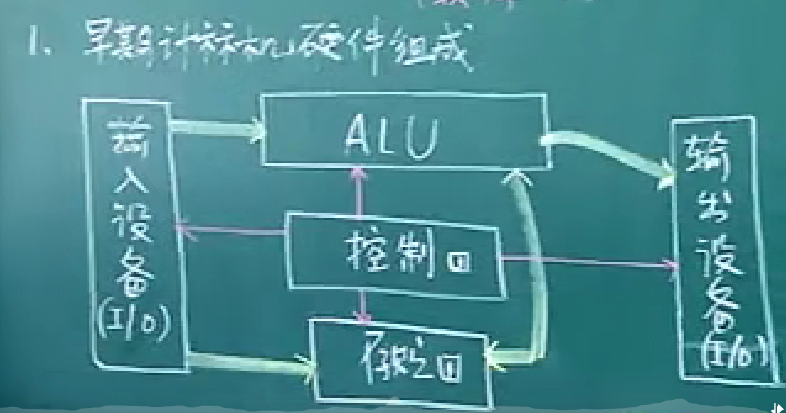 1、早期计算机硬件组成
输入设备(I/O)
ALU
控制
输出设备(I/O)